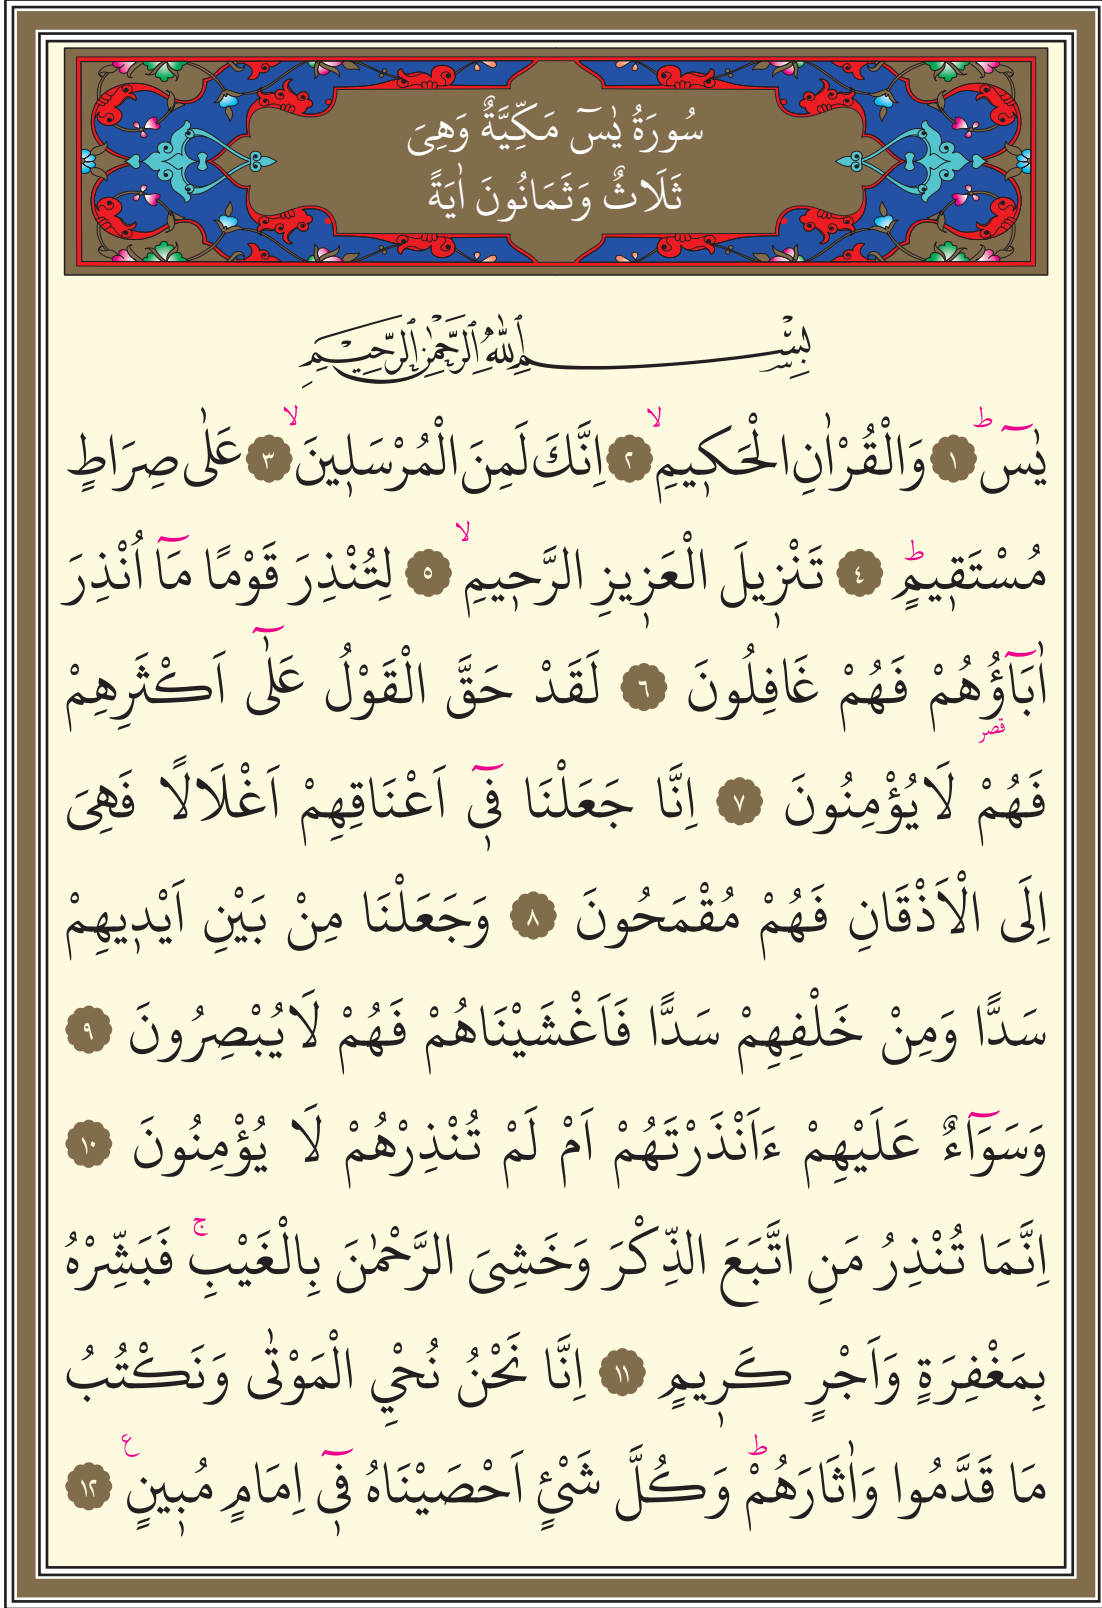 سُورَةُ يٰسٓ مَكِّيَّةٌ وَهِىَ
ثَلَاثٌ وَثَمَانُونَ اٰيَةً
بِسْمِ اللّٰهِ الرَّحْمٰنِ الرَّحِيمِ
يٰسٓ ۜ ﴿١﴾ وَالْقُرْاٰنِ الْحَك۪يمِ ۙ ﴿٢﴾ اِنَّكَ لَمِنَ الْمُرْسَل۪ينَ ۙ ﴿٣﴾ عَلٰى صِرَاطٍ
مُسْتَق۪يمٍ ۜ ﴿٤﴾ تَنْز۪يلَ الْعَز۪يزِ الرَّح۪يمِ ۙ ﴿٥﴾ لِتُنْذِرَ قَوْمًا مَٓا اُنْذِرَ
اٰبَٓاؤُهُمْ فَهُمْ غَافِلُونَ ﴿٦﴾ لَقَدْ حَقَّ الْقَوْلُ عَلٰٓى اَكْثَرِهِمْ
قصر
فَهُمْ لَا يُؤْمِنُونَ ﴿٧﴾ اِنَّا جَعَلْنَا ف۪ٓى اَعْنَاقِهِمْ اَغْلَالًا فَهِىَ
اِلَى الْاَذْقَانِ فَهُمْ مُقْمَحُونَ ﴿٨﴾ وَجَعَلْنَا مِنْ بَيْنِ اَيْد۪يهِمْ
سَدًّا وَمِنْ خَلْفِهِمْ سَدًّا فَاَغْشَيْنَاهُمْ فَهُمْ لَا يُبْصِرُونَ ﴿٩﴾
وَسَوَٓاءٌ عَلَيْهِمْ ءَاَنْذَرْتَهُمْ اَمْ لَمْ تُنْذِرْهُمْ لَا يُؤْمِنُونَ ﴿١٠﴾
اِنَّمَا تُنْذِرُ مَنِ اتَّبَعَ الذِّكْرَ وَخَشِىَ الرَّحْمٰنَ بِالْغَيْبِ ۚ فَبَشِّرْهُ
بِمَغْفِرَةٍ وَاَجْرٍ كَر۪يمٍ ﴿١١﴾ اِنَّا نَحْنُ نُحْيِ الْمَوْتٰى وَنَكْتُبُ
مَا قَدَّمُوا وَاٰثَارَهُمْ ۜ وَكُلَّ شَىْءٍ اَحْصَيْنَاهُ ف۪ٓى اِمَامٍ مُب۪ينٍ ع ﴿١٢﴾